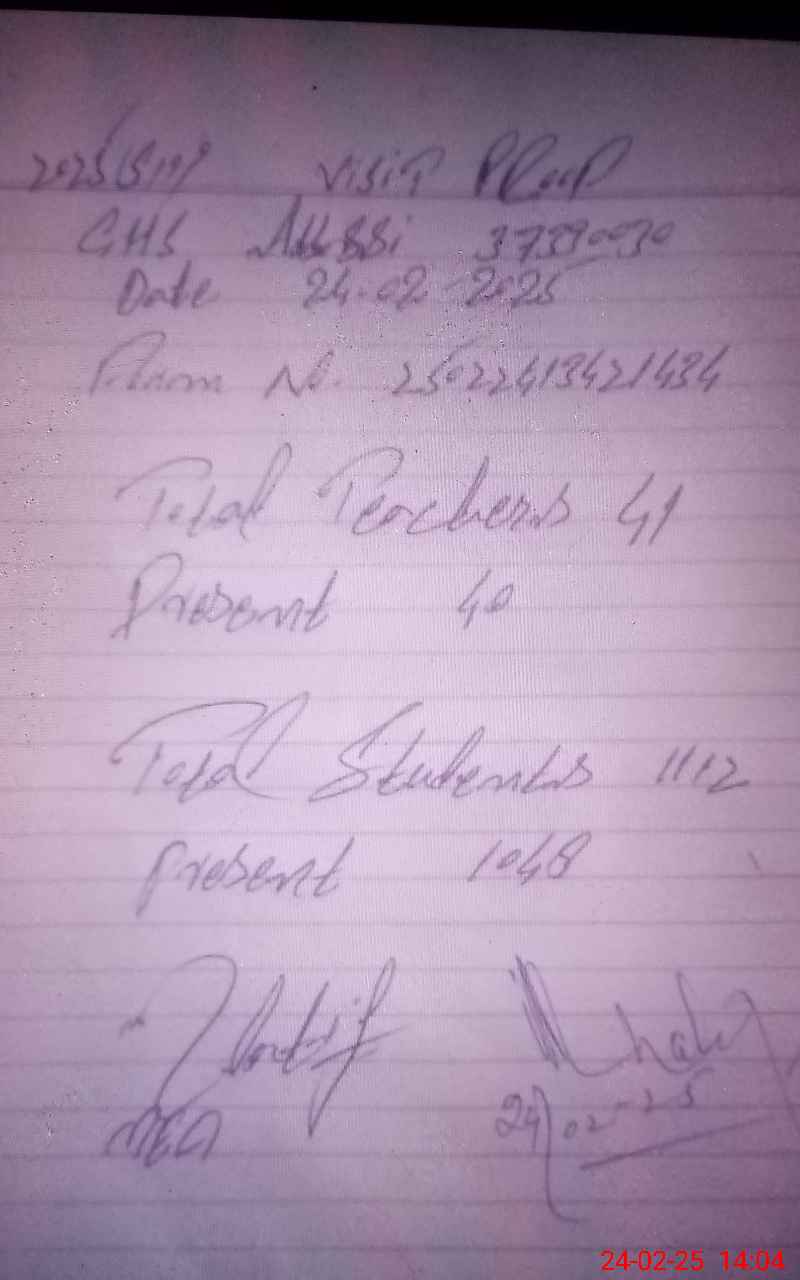 Visit Proof
GHS 37390030
Date 24-02-2025
No. 25022413421434
Total Teachers 41
Present 40
Total Students 1112
Present 1048
MEA 24/02-25
24-02-25 14:04